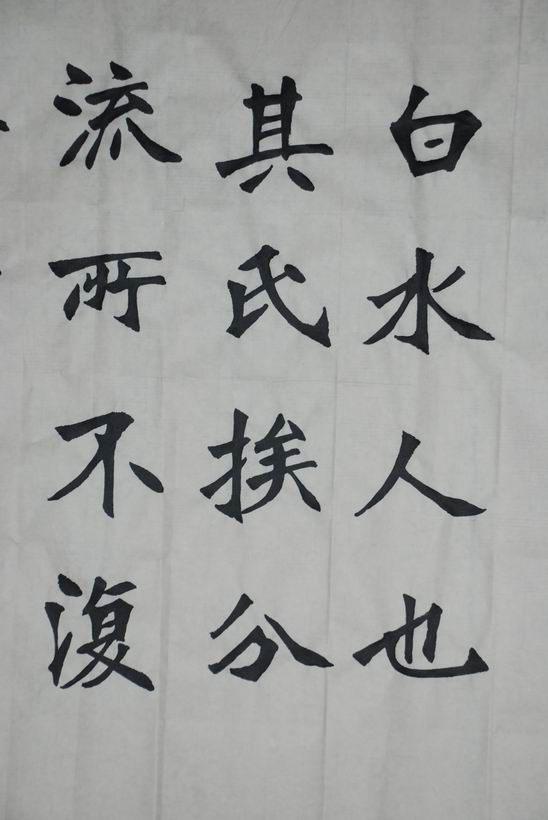 白水人也
其氏挨分
流所不復